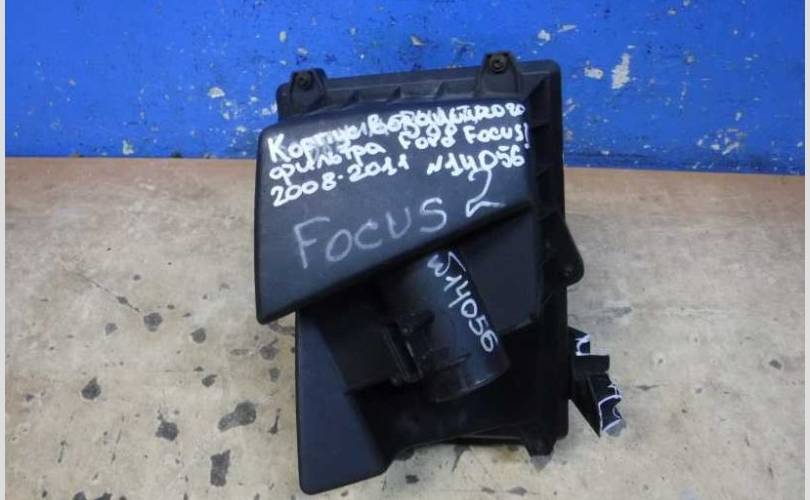 Корпус Воздушного
фильтра Ford Focus
2008-2011 N14056
FOCUS 2
N14056